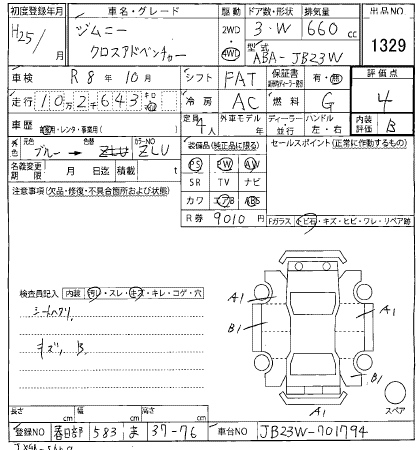 初度登録年月 車名・グレード 駆動 ドア数・形状 排気量 出品NO
H25/ 月 ジムニー クロスアドベンチャー 2WD 4WD 3・W 660 cc 1329
型式 ABA-JB23W
車検 R8年10月 シフト FAT 保証書 有・無 評価点
走行 10万2千643 km 冷房 AC 燃料 G 4
車歴 自家用・レンタ・事業用( ) 定員 4人 外車モデル 年 ディーラー・並行 ハンドル 左・右 内装評価 B
外色 元色 ブルー → 色替 ZLU カラーNO ZLU
装備品(純正品に限る) セールスポイント(正常に作動するもの)
名義変更期限 月 日迄 積載 t
PS PW AW
SR TV ナビ
注意事項(欠品・修復・不具合箇所および状態)
カワ エアB ABS
R券 9010円 Fガラス トビ石・キズ・ヒビ・ワレ・リペア跡
検査員記入 内装 汚レ・スレ・キズ・キレ・コゲ・穴
シートヘタリ
キズ, B
A1
B1
A1
B1
A1
スペア
長さ cm 幅 cm 高さ cm
登録NO 春日部 583 ま 37-76 車台NO JB23W-701794